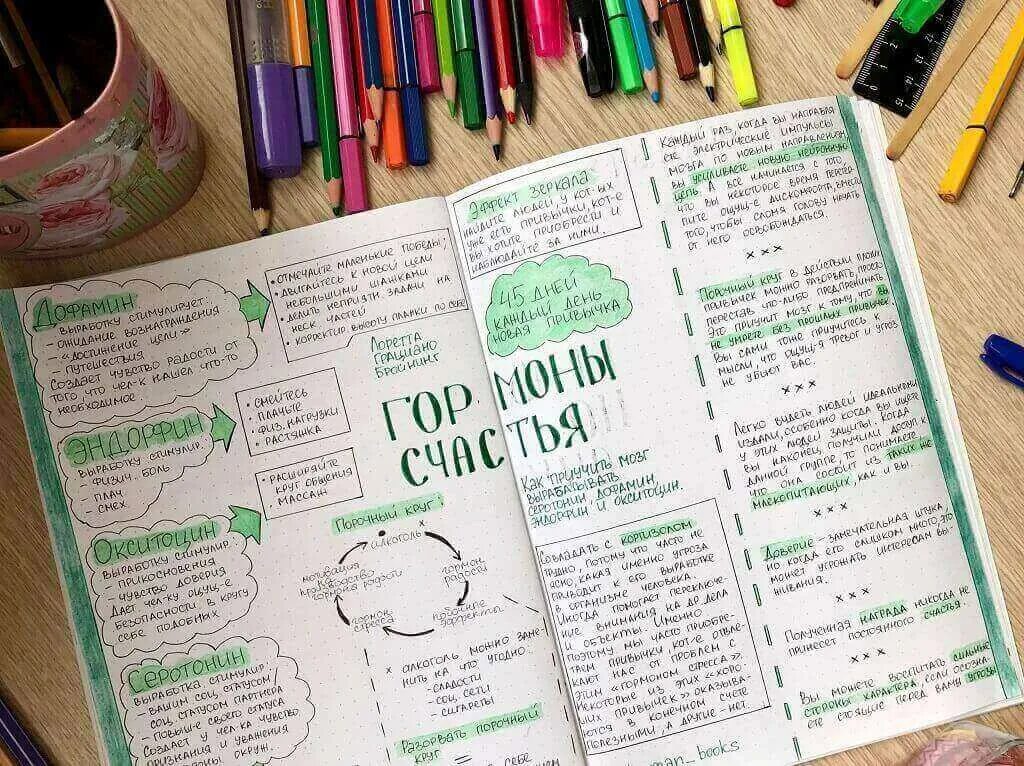 Дофамин
выработку стимулирует:
- ожидание вознаграждения
- «достижение цели»
- путешествия
Создает чувство радости от
того, что чел-к нашел что-то
необходимое.
• Отмечайте маленькие победы;
• Двигайтесь к новой цели
небольшими шажками
• Делить неприятн. задачи на
неск. частей
• Корректир. высоту планки по себе
Эндорфин
выработку стимулир.
- физич. боль
- плач
- смех.
• Смейтесь
• Плачьте
• Физ. нагрузки
• Растяжка
Окситоцин
выработку стимулир.:
- прикосновения
- чувство доверия
Дает чел-ку ощущ-е
безопасности в кругу
себе подобных
• Расширяйте
круг общения
• Массаж
Серотонин
выработка стимулир.:
- вашим соц. статусом/
соц. статусом партнера
- повыш-е своего статуса
Создает у чел-ка чувство
признания и уважения
окруж.
Лоретта
Грациано
Бройнинг
ГОРМОНЫ
СЧАСТЬЯ
Как приучить мозг
вырабатывать
серотонин, дофамин,
эндорфин и окситоцин.
Порочный круг:
алкоголь
x
гормон
радости
побочные
эффекты
гормон
стресса
мотивация
производство
гормона радости
x алкоголь можно заме-
нить на что угодно:
- сладости
- соц. сети
- сигареты
Разорвать порочный
круг =
Эффект зеркала
Найдите людей, у кот-ых
уже есть привычки, кот-е
вы хотите приобрести и
наблюдайте за ними.
45 дней
каждый день
новая привычка
Совладать с кортизолом
трудно, потому что часто не
ясно, какая именно угроза
приводит к его выработке
в организме человека.
Иногда помогает переключе-
ние внимания на др. дела
и объекты. Именно
поэтому мы часто приобре-
таем привычки, кот-е отвле-
кают нас от проблем с
этим «гормоном стресса».
Некоторые из этих «хоро-
ших привычек» оказыва-
ются в конечном счете
полезными, а другие - нет.
man_books
Каждый раз, когда вы направля-
ете электрические импульсы
мозга по новым направлениям,
вы усиливаете новую нейронную
цепь. А все начинается с того,
что вы некоторое время перетер-
пите ощущ-е дискомфорта, вместо
того, чтобы сломя голову начать
от него освобождаться.
x x x
Порочный круг в действии плохих
привычек можно разорвать, просто
перестав что-либо предпринимать.
Это приучит мозг к тому, что вы
не умрете без прошлых привычек.
Вы сами тоже приучитесь к
мысли, что ощущ-я тревог и угроз
не убьют вас.
x x x
Легко видеть людей идеальными
издали, особенно когда вы ищете
у этих людей защиты. Когда
вы наконец получили доступ к
данной группе, то понимаете,
что она состоит из таких же
млекопитающих, как и вы.
x x x
Доверие - замечательная штука,
но когда его слишком много, это
может угрожать интересам вы-
живания.
x x x
Полученная награда никогда не
принесет постоянного счастья.
x x x
Вы можете воспитать сильные
стороны характера, если осозна-
ете стоящие перед вами угрозы